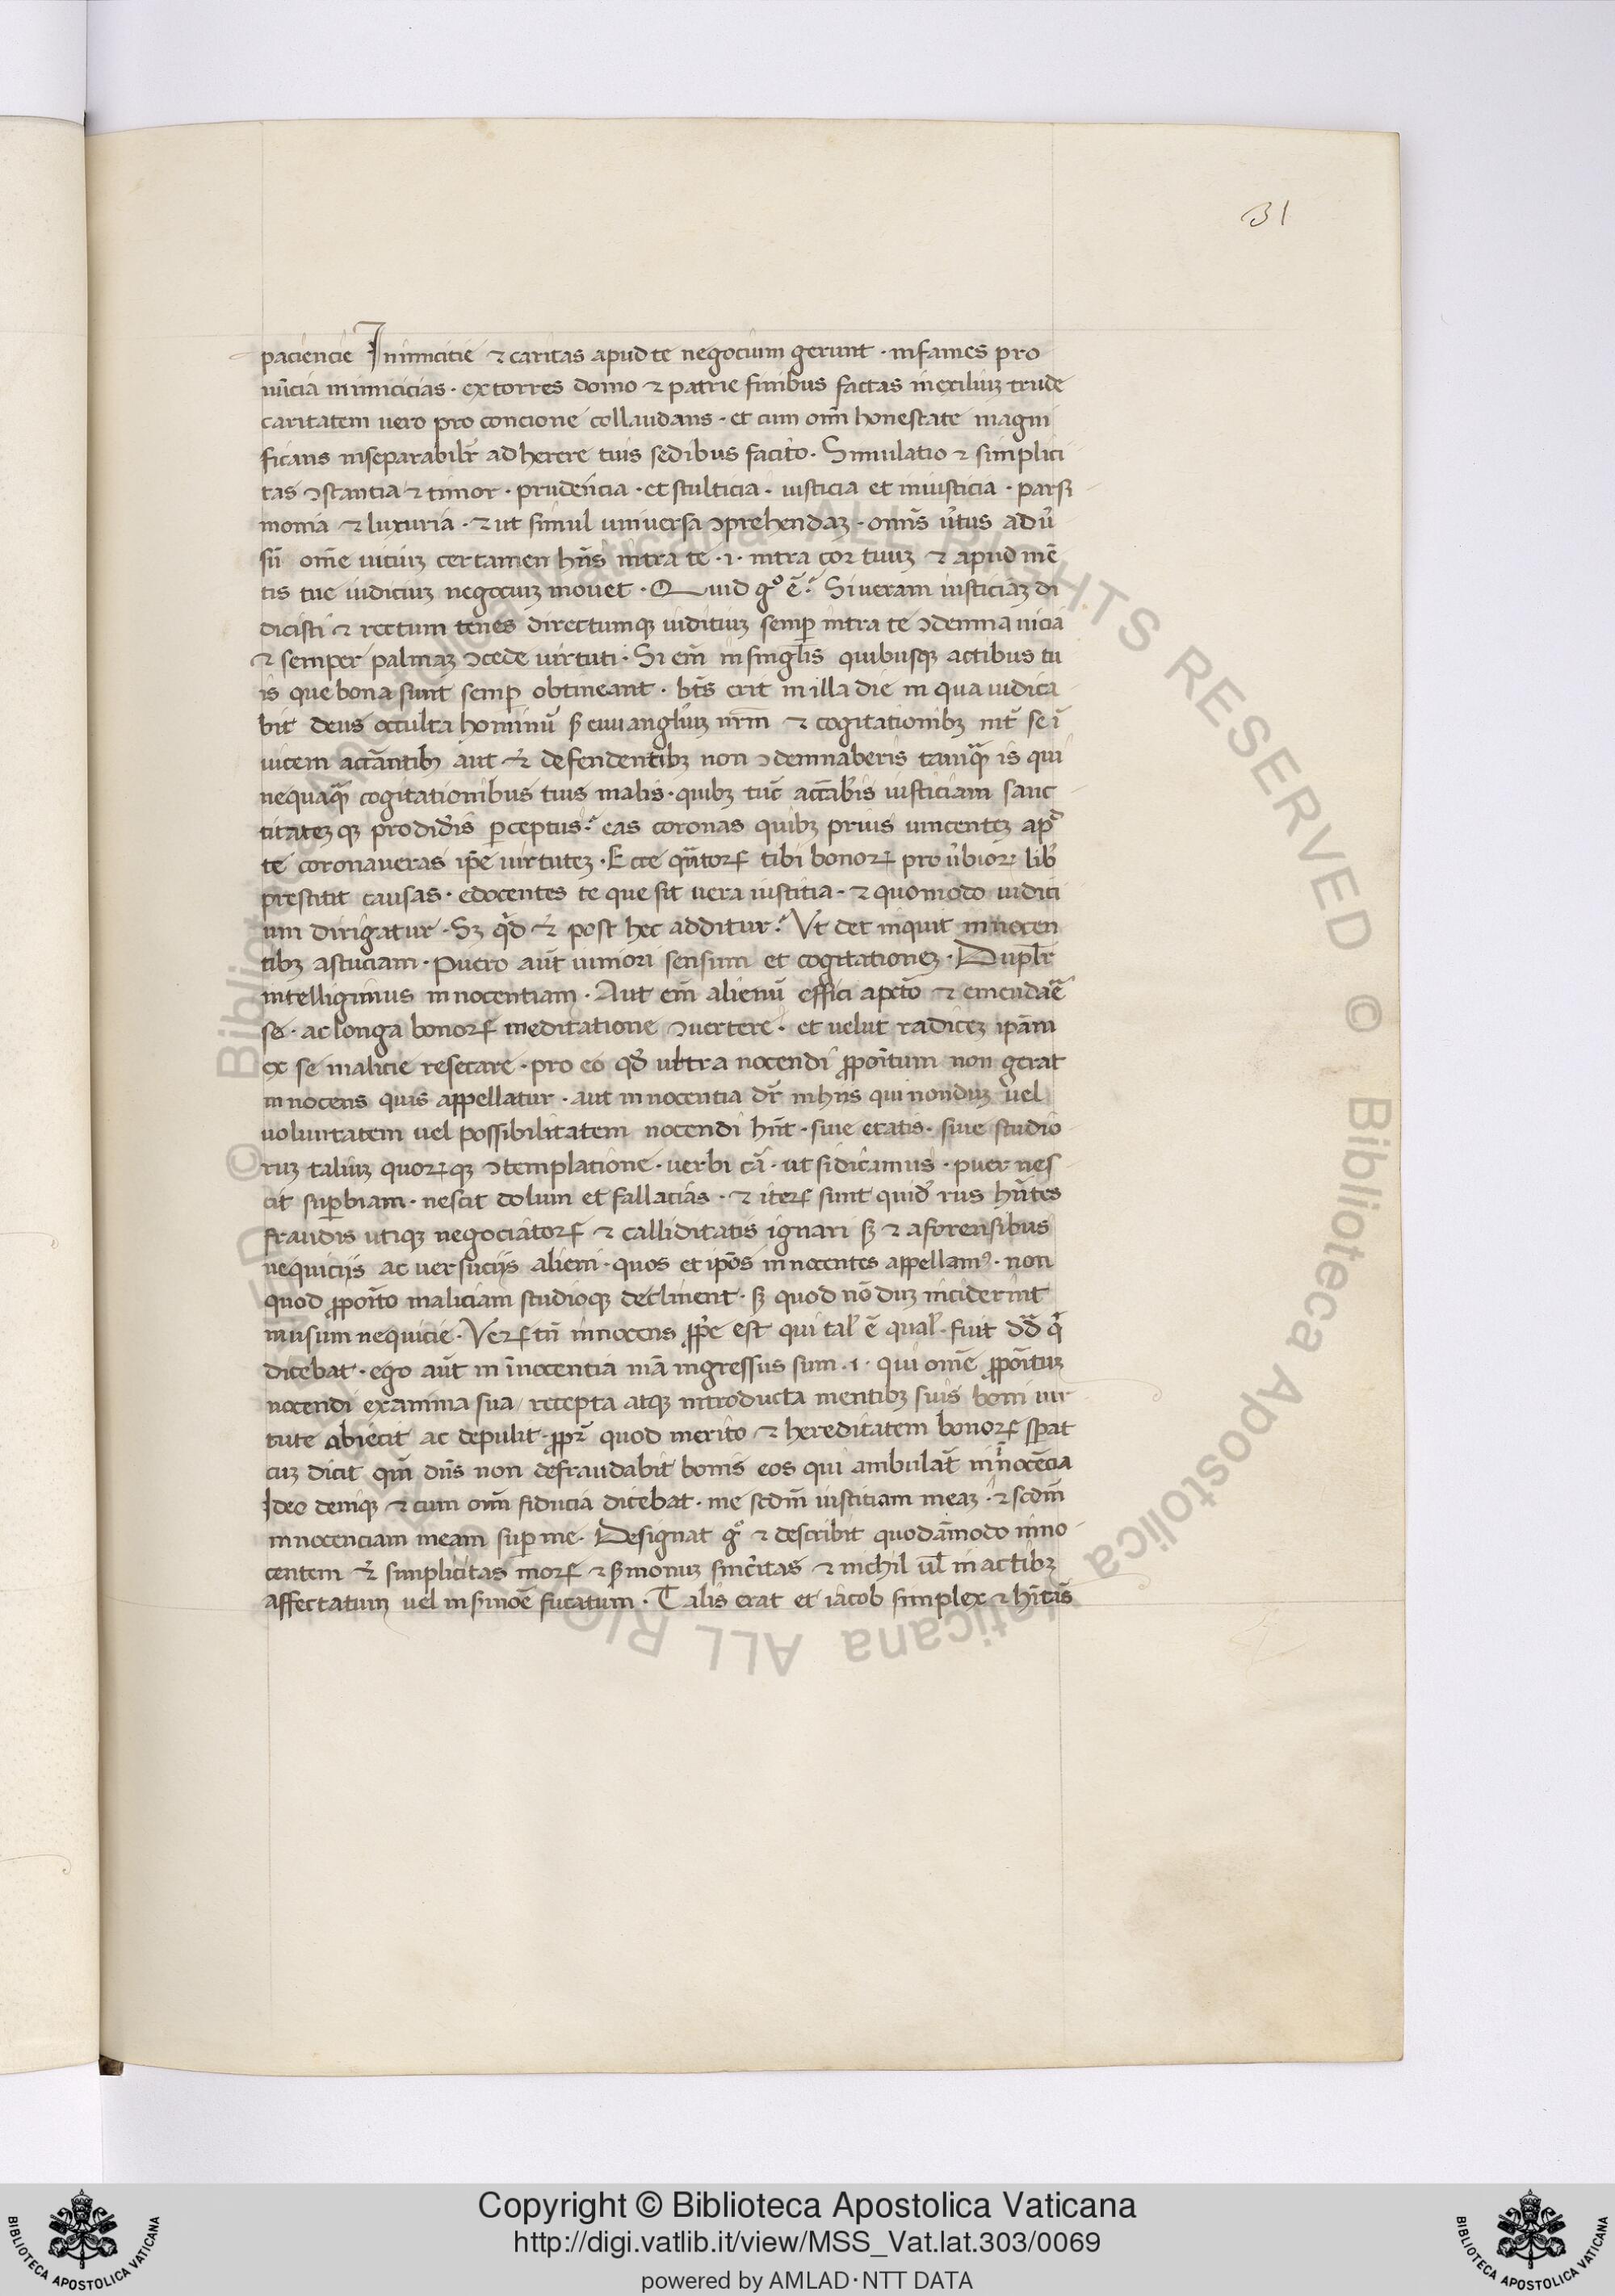 31
paciencie Inimicitie ⁊ caritas apud te negocium gerunt · infames pro
nūcia inimicicias · extorres domo ⁊ patrie finibus factas inexiliuꝫ trude
caritatem uero pro concione collaudans · et cum om̄i honestate magni
ficans inseparabilr̄ adherere tuis sedibus facito · Simulatio ⁊ simplici
tas ꝯstantia ⁊ timor · prudencia · et stulticia · iusticia et iniusticia · parsi
monia ⁊ luxuria · ⁊ ut simul uniuersa ꝯprehendaꝫ · omīs ūtus adū
sū om̄e uiciuꝫ certamen hn̄s intra te · i · intra cor tuuꝫ ⁊ apud mē
tis tue iudiciuꝫ negociuꝫ mouet · Quid gͦ ē? Si ueram iusticiaꝫ di
dicisti ⁊ rectum tenes directumqꝫ iuditiuꝫ semꝑ intra te ꝯdemna uicia
⁊ semper palmaꝫ ꝯcede uirtuti · Si em̄ in singl̄is quibusqꝫ actibus tu
is que bona sunt semꝑ obtineant · bt̄s erit in illa die in qua iudica
bit deus occulta hominū ẜ euuangliuꝫ nr̄m ⁊ cogitationibꝫ int̄ se ī
uicem accāntibꝫ aut ⁊ defendentibꝫ non ꝯdemnaberis tamqᷓ is qui
nequaqᷓ cogitationibus tuis malis · quibꝫ tūc accābis iusticiam sanc
titateꝫqꝫ prodidīs ꝑceptus? eas coronas quibꝫ prius uincenteꝫ apᵈ
te coronaueras ip̄e uirtuteꝫ · Ecce qᷓntoꝝ tibi bonoꝝ prou̓bioꝝ lib̓
prestitit causas · edocentes te que sit uera iustitia · ⁊ quomodo iuditi
um dirigatur · Sꝫ qd̓ ⁊ post hec additur? Vt det inquit innocen
tibꝫ astuciam · Puero aūt iuniori sensum et cogitationeꝫ · Duplr̄
intelligimus innocentiam · Aut em̄ alienū effici apctō ⁊ emendaē
se · ac longa bonoꝝ meditatione ꝯuertere · et uelut radiceꝫ ip̄am
ex se malicie resecare · pro eo qd̓ ultra nocendi ꝓpoītum non gerat
innocens quis appellatur · aut innocentia dr̄ in hiis qui nonduꝫ uel
uoluntatem uel possibilitatem nocendi hn̄t · siue etatis · siue studio
ruꝫ taliuꝫ quoꝝqꝫ ꝯtemplatione · uerbi cā · ut si dicamus · puer nes
cit suꝑbiam · nescit dolum et fallacias · ⁊ iteꝝ sunt quid̓ rus hn̄tes
fraudis utiqꝫ negociatoꝝ ⁊ calliditatis ignari sꝫ ⁊ aforensibus
nequiciis ac uersuciis alieni · quos et ip̄os innocentes appellamꝰ · non
quod ꝓpoīto maliciam studioqꝫ declinent · sꝫ quod nō duꝫ inciderint
inusum nequicie · Veꝝ tn̄ innocens ꝓp̄e est qui tal̓ ē qual̓ fuit dd̄ q̓
dicebat · ego aūt in īnocentia mā ingressus sum · i · qui om̄e ꝓpoītuꝫ
nocendi ex anima sua / recepta atqꝫ introducta mentibꝫ suis boni uir
tute abiecit ac depulit · ꝓpr̄ quod merito ⁊ hereditatem bonoꝝ sꝑat
cuꝫ dicit qm̄ dn̄s non defraudabit bonis eos qui ambulāt in īnocēcia
Ideo deniqꝫ ⁊ cum om̄i fiducia dicebat · me scdm̄ iustitiam meaꝫ · ⁊ scdm̄
innocenciam meam suꝑ me · Designat gͦ ⁊ describit quodāmodo inno
centem ⁊ simplicitas moꝝ ⁊ ẜmonuꝫ sinc̓itas ⁊ nichil ul̄ in actibꝫ
affectatum uel in ẜmoē fucatum · Talis erat et iacob simplex ⁊ hītās
Copyright © Biblioteca Apostolica Vaticana
http://digi.vatlib.it/view/MSS_Vat.lat.303/0069
powered by AMLAD·NTT DATA
BIBLIOTECA APOSTOLICA VATICANA
BIBLIOTECA APOSTOLICA VATICANA
© Biblioteca Apostolica Vaticana ALL RIGHTS RESERVED © Biblioteca Apostolica Vaticana ALL RIGHTS RESERVED